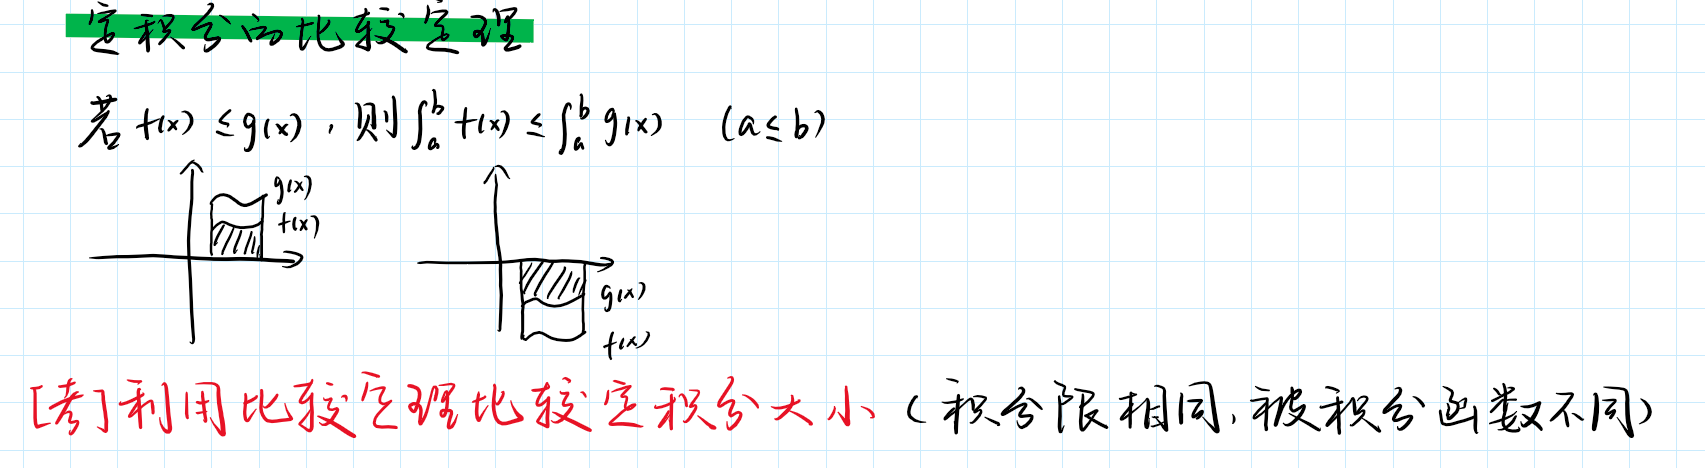 定积分的比较定理
若 f(x) ≤ g(x)，则 ∫_a^b f(x) ≤ ∫_a^b g(x) (a ≤ b)
g(x)
f(x)
g(x)
f(x)
[考] 利用比较定理比较定积分大小（积分限相同，被积分函数不同）